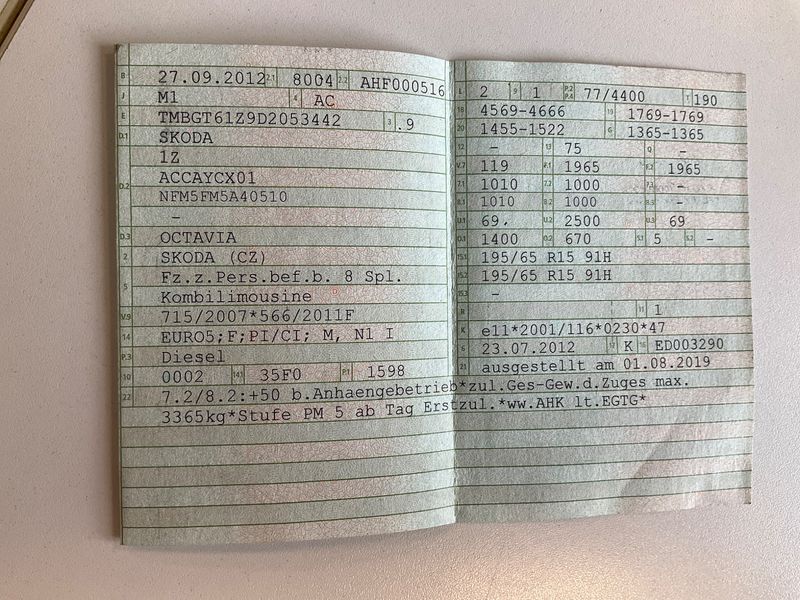 B 27.09.2012 2.1 8004 2.2 AHF000516
J M1 4 AC
E TMBGT61Z9D2053442 3 .9
D.1 SKODA
1Z
D.2 ACCAYCX01
NFM5FM5A40510
–
D.3 OCTAVIA
2 SKODA (CZ)
5 Fz.z.Pers.bef.b. 8 Spl.
Kombilimousine
V.9 715/2007*566/2011F
14 EURO5;F;PI/CI; M, N1 I
P.3 Diesel
10 0002 14.1 35F0 P.1 1598
22 7.2/8.2:+50 b.Anhaengebetrieb*zul.Ges-Gew.d.Zuges max.
3365kg*Stufe PM 5 ab Tag Erstzul.*ww.AHK lt.EGTG*
L 2 9 1 P.2 P.4 77/4400 T 190
18 4569-4666 19 1769-1769
20 1455-1522 G 1365-1365
12 – 13 75 Q –
V.7 119 F.1 1965 F.2 1965
7.1 1010 7.2 1000 7.3 –
8.1 1010 8.2 1000 8.3 –
U.1 69. U.2 2500 U.3 69
O.1 1400 O.2 670 S.1 5 S.2 –
15.1 195/65 R15 91H
15.2 195/65 R15 91H
15.3 –
R 11 1
K e11*2001/116*0230*47
6 23.07.2012 17 K 16 ED003290
21 ausgestellt am 01.08.2019